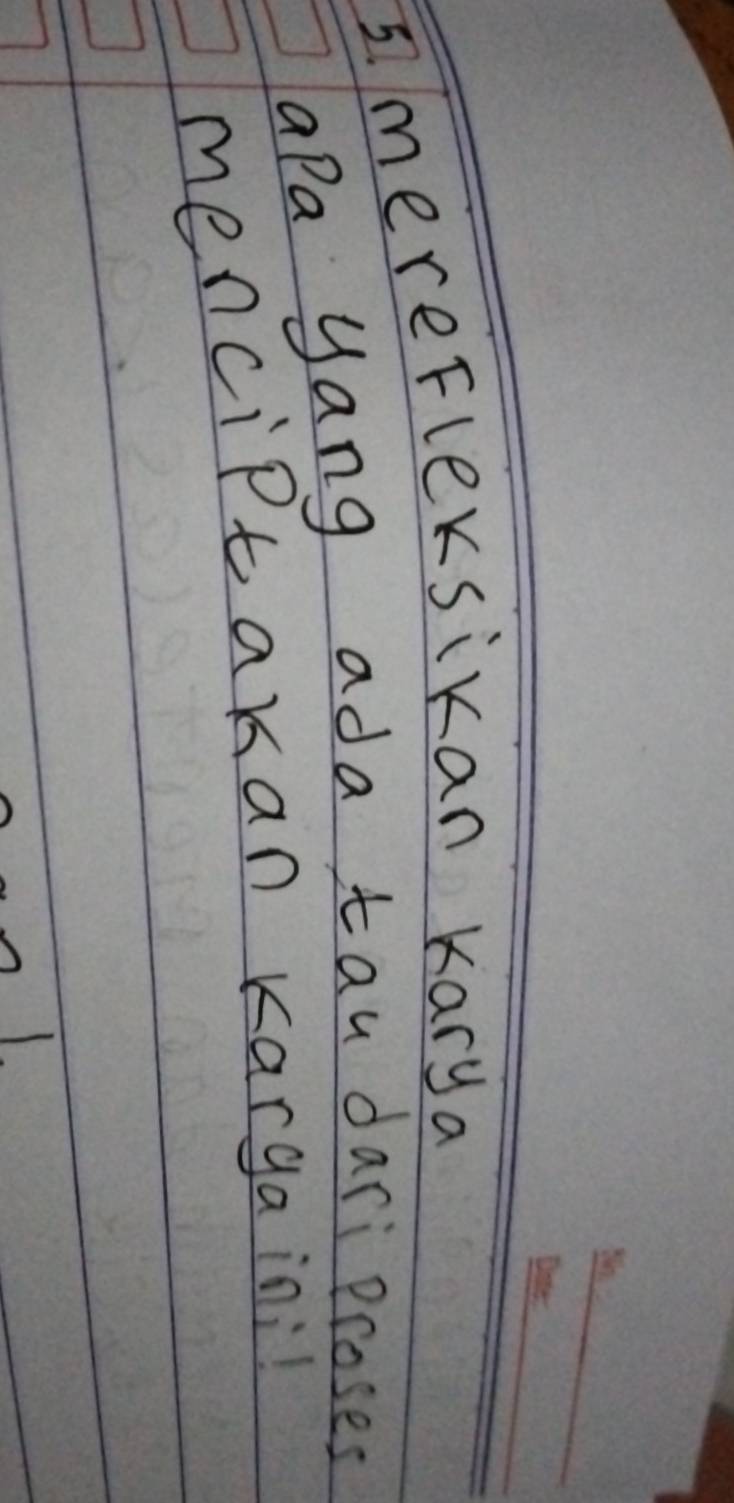 5. merefleksikan karya
apa yang ada tau dari proses
menciptakan karya ini!